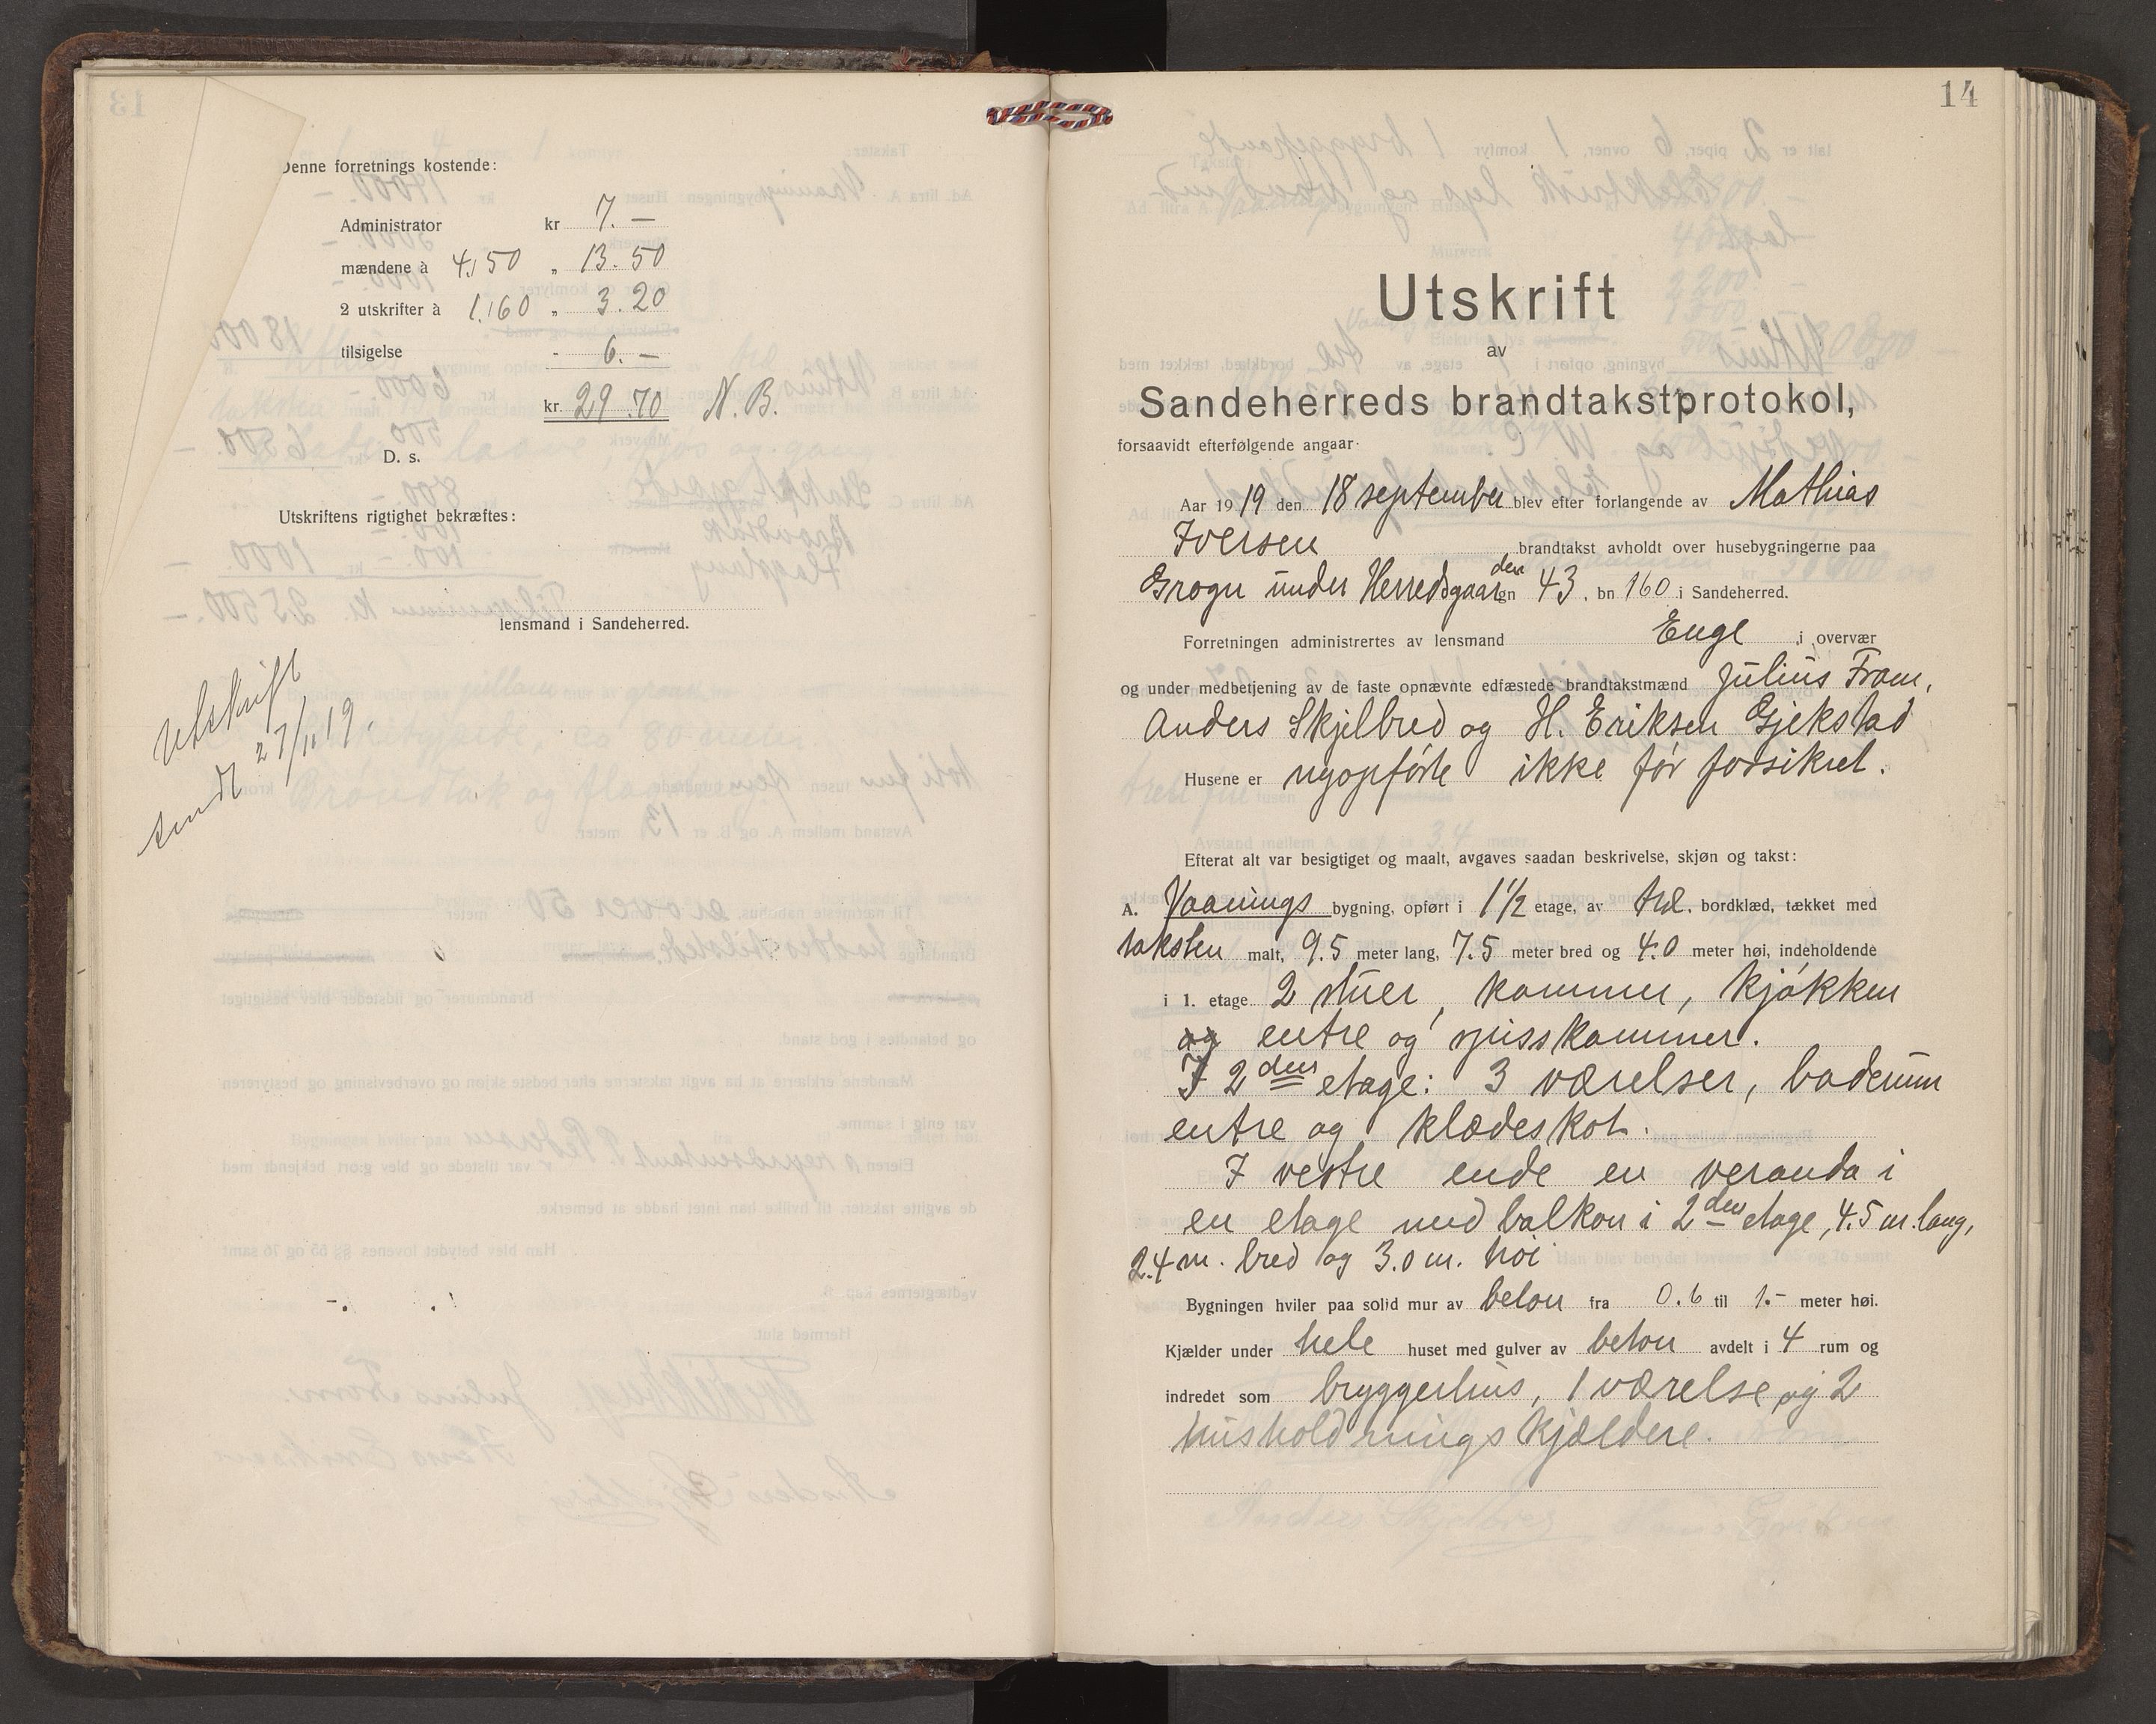 Denne forretnings kostende:
Administrator kr 7. —
mændene à 4.50 „ 13. 50
2 utskrifter à 1.60 „ 3. 20
tilsigelse - 6. —
kr. 29.70 N. B.
D. s.
Utskriftens rigtighet bekræftes:
lensmand i Sandeherred.
Utskrift
sendt 27/11 19.
14
Utskrift
av
Sandeherreds brandtakstprotokol,
forsaavidt efterfølgende angaar·
Aar 1919 den 18 september blev efter forlangende av Mathias
Iversen brandtakst avholdt over husebygningerne paa
Grogn under Herredsgaarden gn 43, bn 160 i Sandeherred.
Forretningen administrertes av lensmand Enge i overvær
og under medbetjening av de faste opnævnte edfæstede brandtakstmænd Julius Fram,
Anders Skjelbred og H. Eriksen Gjekstad
Husene er nyopførte ikke før forsikret.
Efterat alt var besigtiget og maalt, avgaves saadan beskrivelse, skjøn og takst:
A. Vaanings bygning, opført i 1½ etage, av træ. bordklæd, tækket med
taksten malt, 9.5 meter lang, 7.5 meter bred og 4.0 meter høi, indeholdende
i 1. etage 2 stuer, kammer, kjøkken
og entre og spisskammer.
I 2den etage: 3 værelser, baderum
entre og klædeskot.
I vestre ende en veranda i
en etage med balkon i 2den etage, 4.5 m. lang,
2.4 m. bred og 3.0 m. høi
Bygningen hviler paa solid mur av beton fra 0.6 til 1.- meter høi.
Kjælder under hele huset med gulver av beton avdelt i 4 rum og
indredet som bryggerhus, 1 værelse og 2
husholdningskjældere.